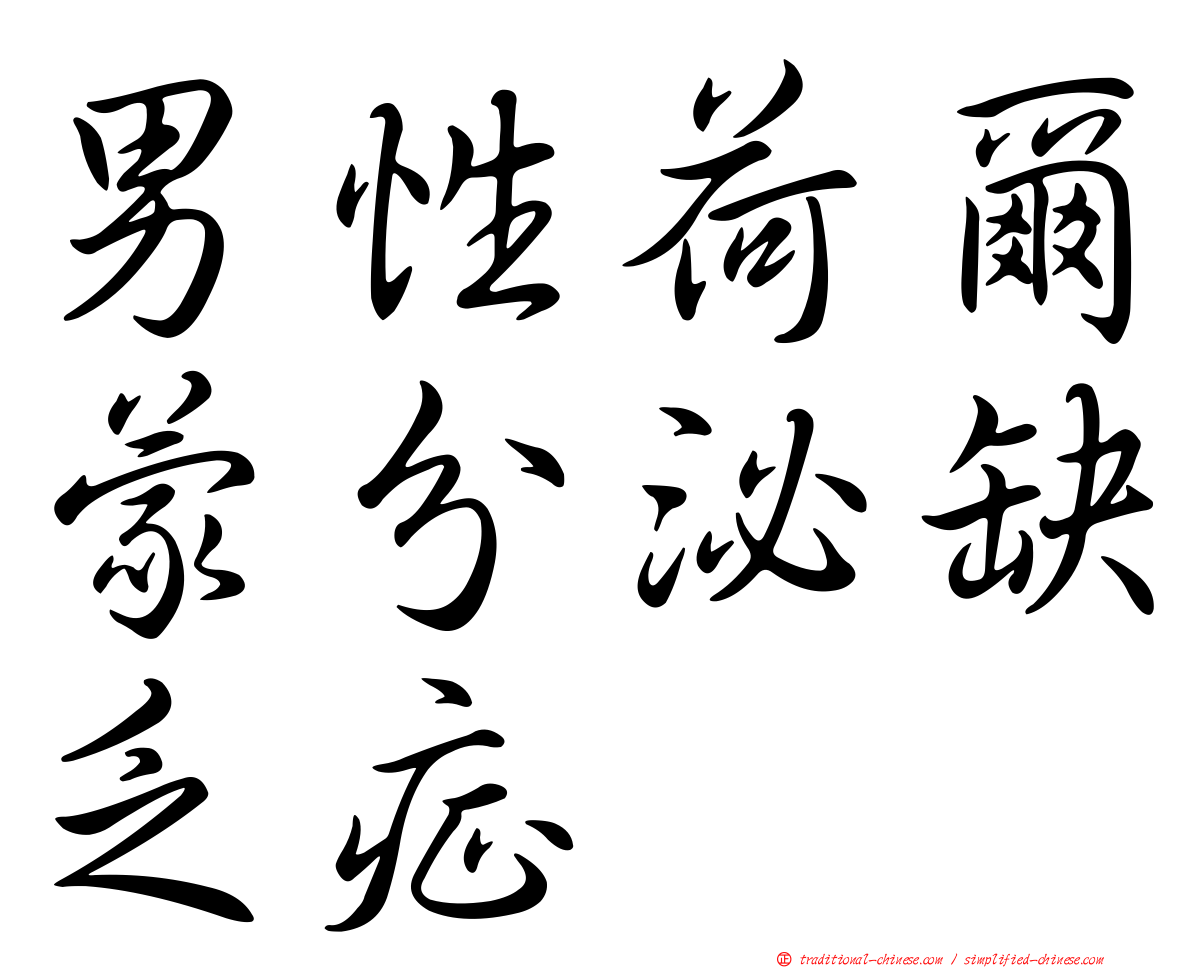 男性荷爾
蒙分泌缺
乏症
正 traditional-chinese.com / simplified-chinese.com